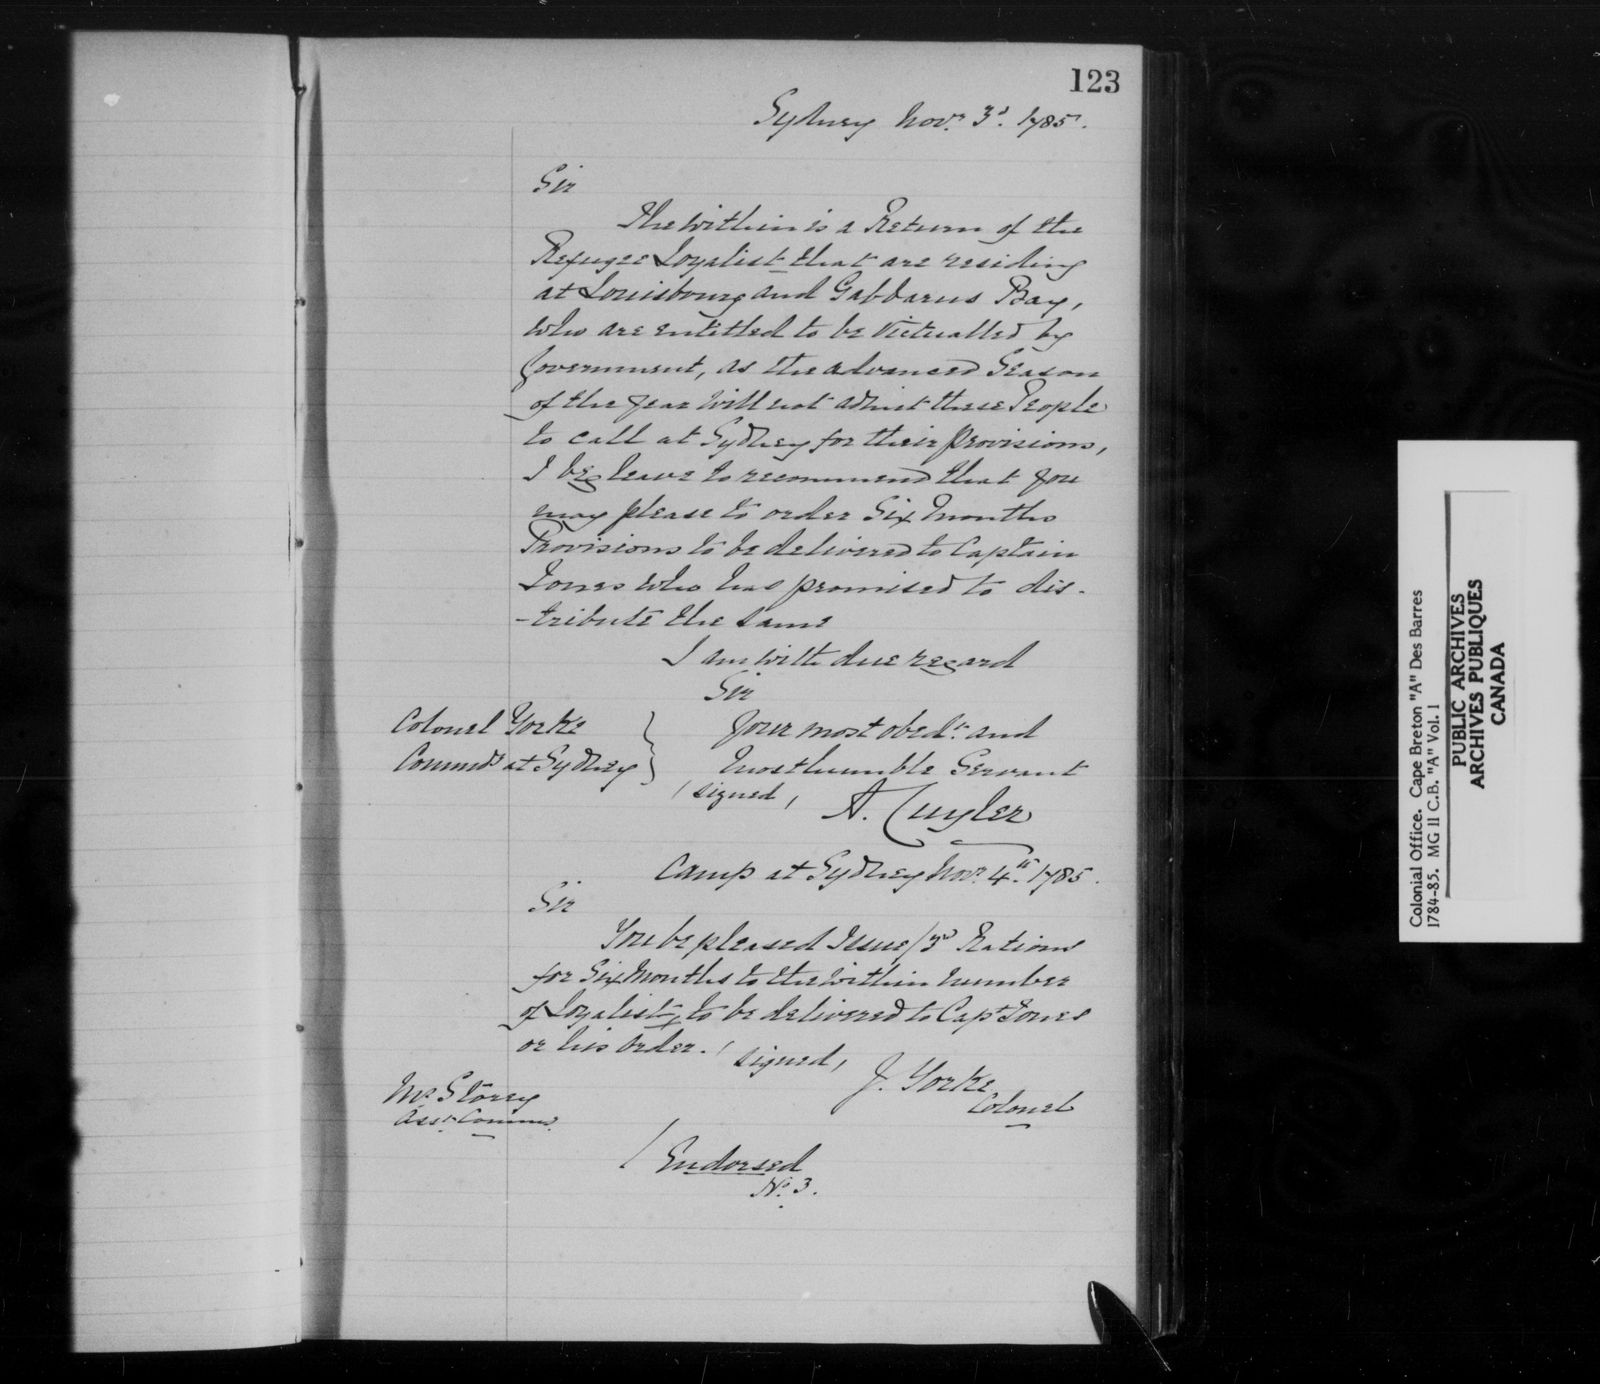 123
Sydney Novr. 3d. 1785.
Sir
The within is a Return of the
Refugee Loyalist that are residing
at Louisbourg and Gabbarus Bay,
who are entitled to be Victualled by
Government, as the advanced Season
of the year will not admit these People
to call at Sydney for their Provisions,
I beg leave to recommend that you
may please to order Six Months
Provisions to be delivered to Captain
Jones who has promised to dis-
-tribute the same
I am with due regard
Sir
Your most obedt. and
Most humble Servant
(signed) A. Cuyler
Colonel Yorke
Commdt at Sydney
Camp at Sydney Novr. 4th. 1785.
Sir
You be pleased Issue Rations
for Six Months to the within number
of Loyalist, to be delivered to Capt Jones
or his order. (signed)
J. Yorke
Colonel
Mr. Storey
Asst. Comms.
(Endorsed
No. 3.
Colonial Office. Cape Breton "A" Des Barres
1784-85. MG 11 C.B. "A" Vol. 1
PUBLIC ARCHIVES
ARCHIVES PUBLIQUES
CANADA